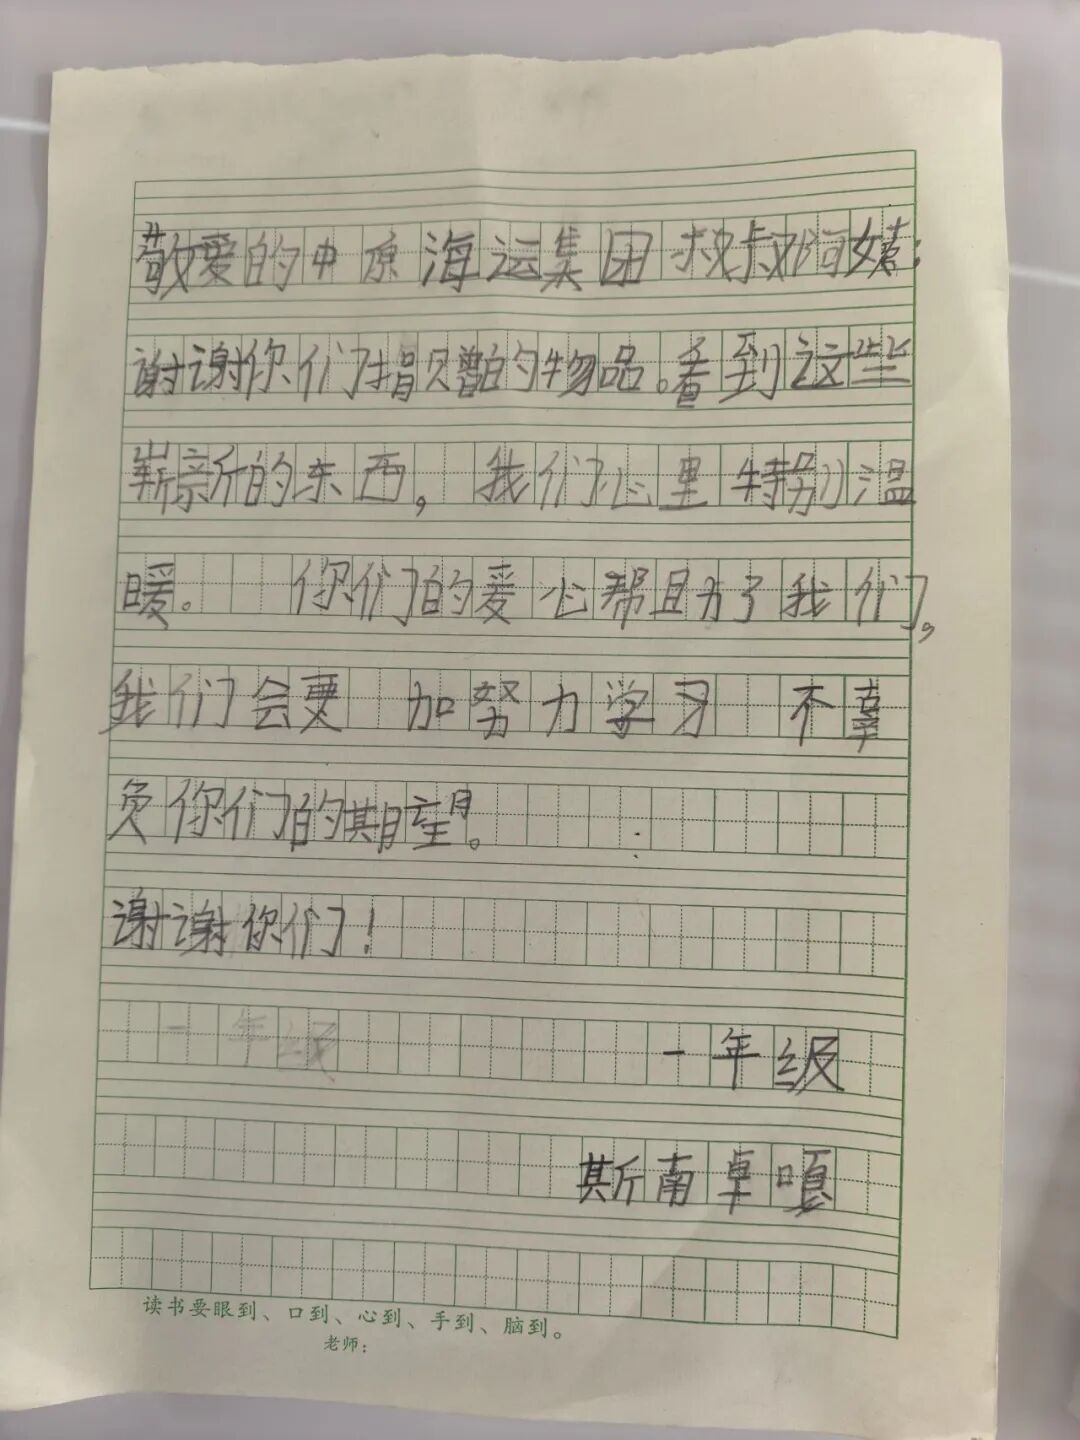 敬爱的中原海运集团叔叔阿姨：
谢谢你们捐赠的物品。看到这些
崭新的东西，我们心里特别温
暖。你们的爱心帮助了我们，
我们会更加努力学习不辜
负你们的期望。
谢谢你们！
一年级
一年级
斯南卓嘎
读书要眼到、口到、心到、手到、脑到。
老师：